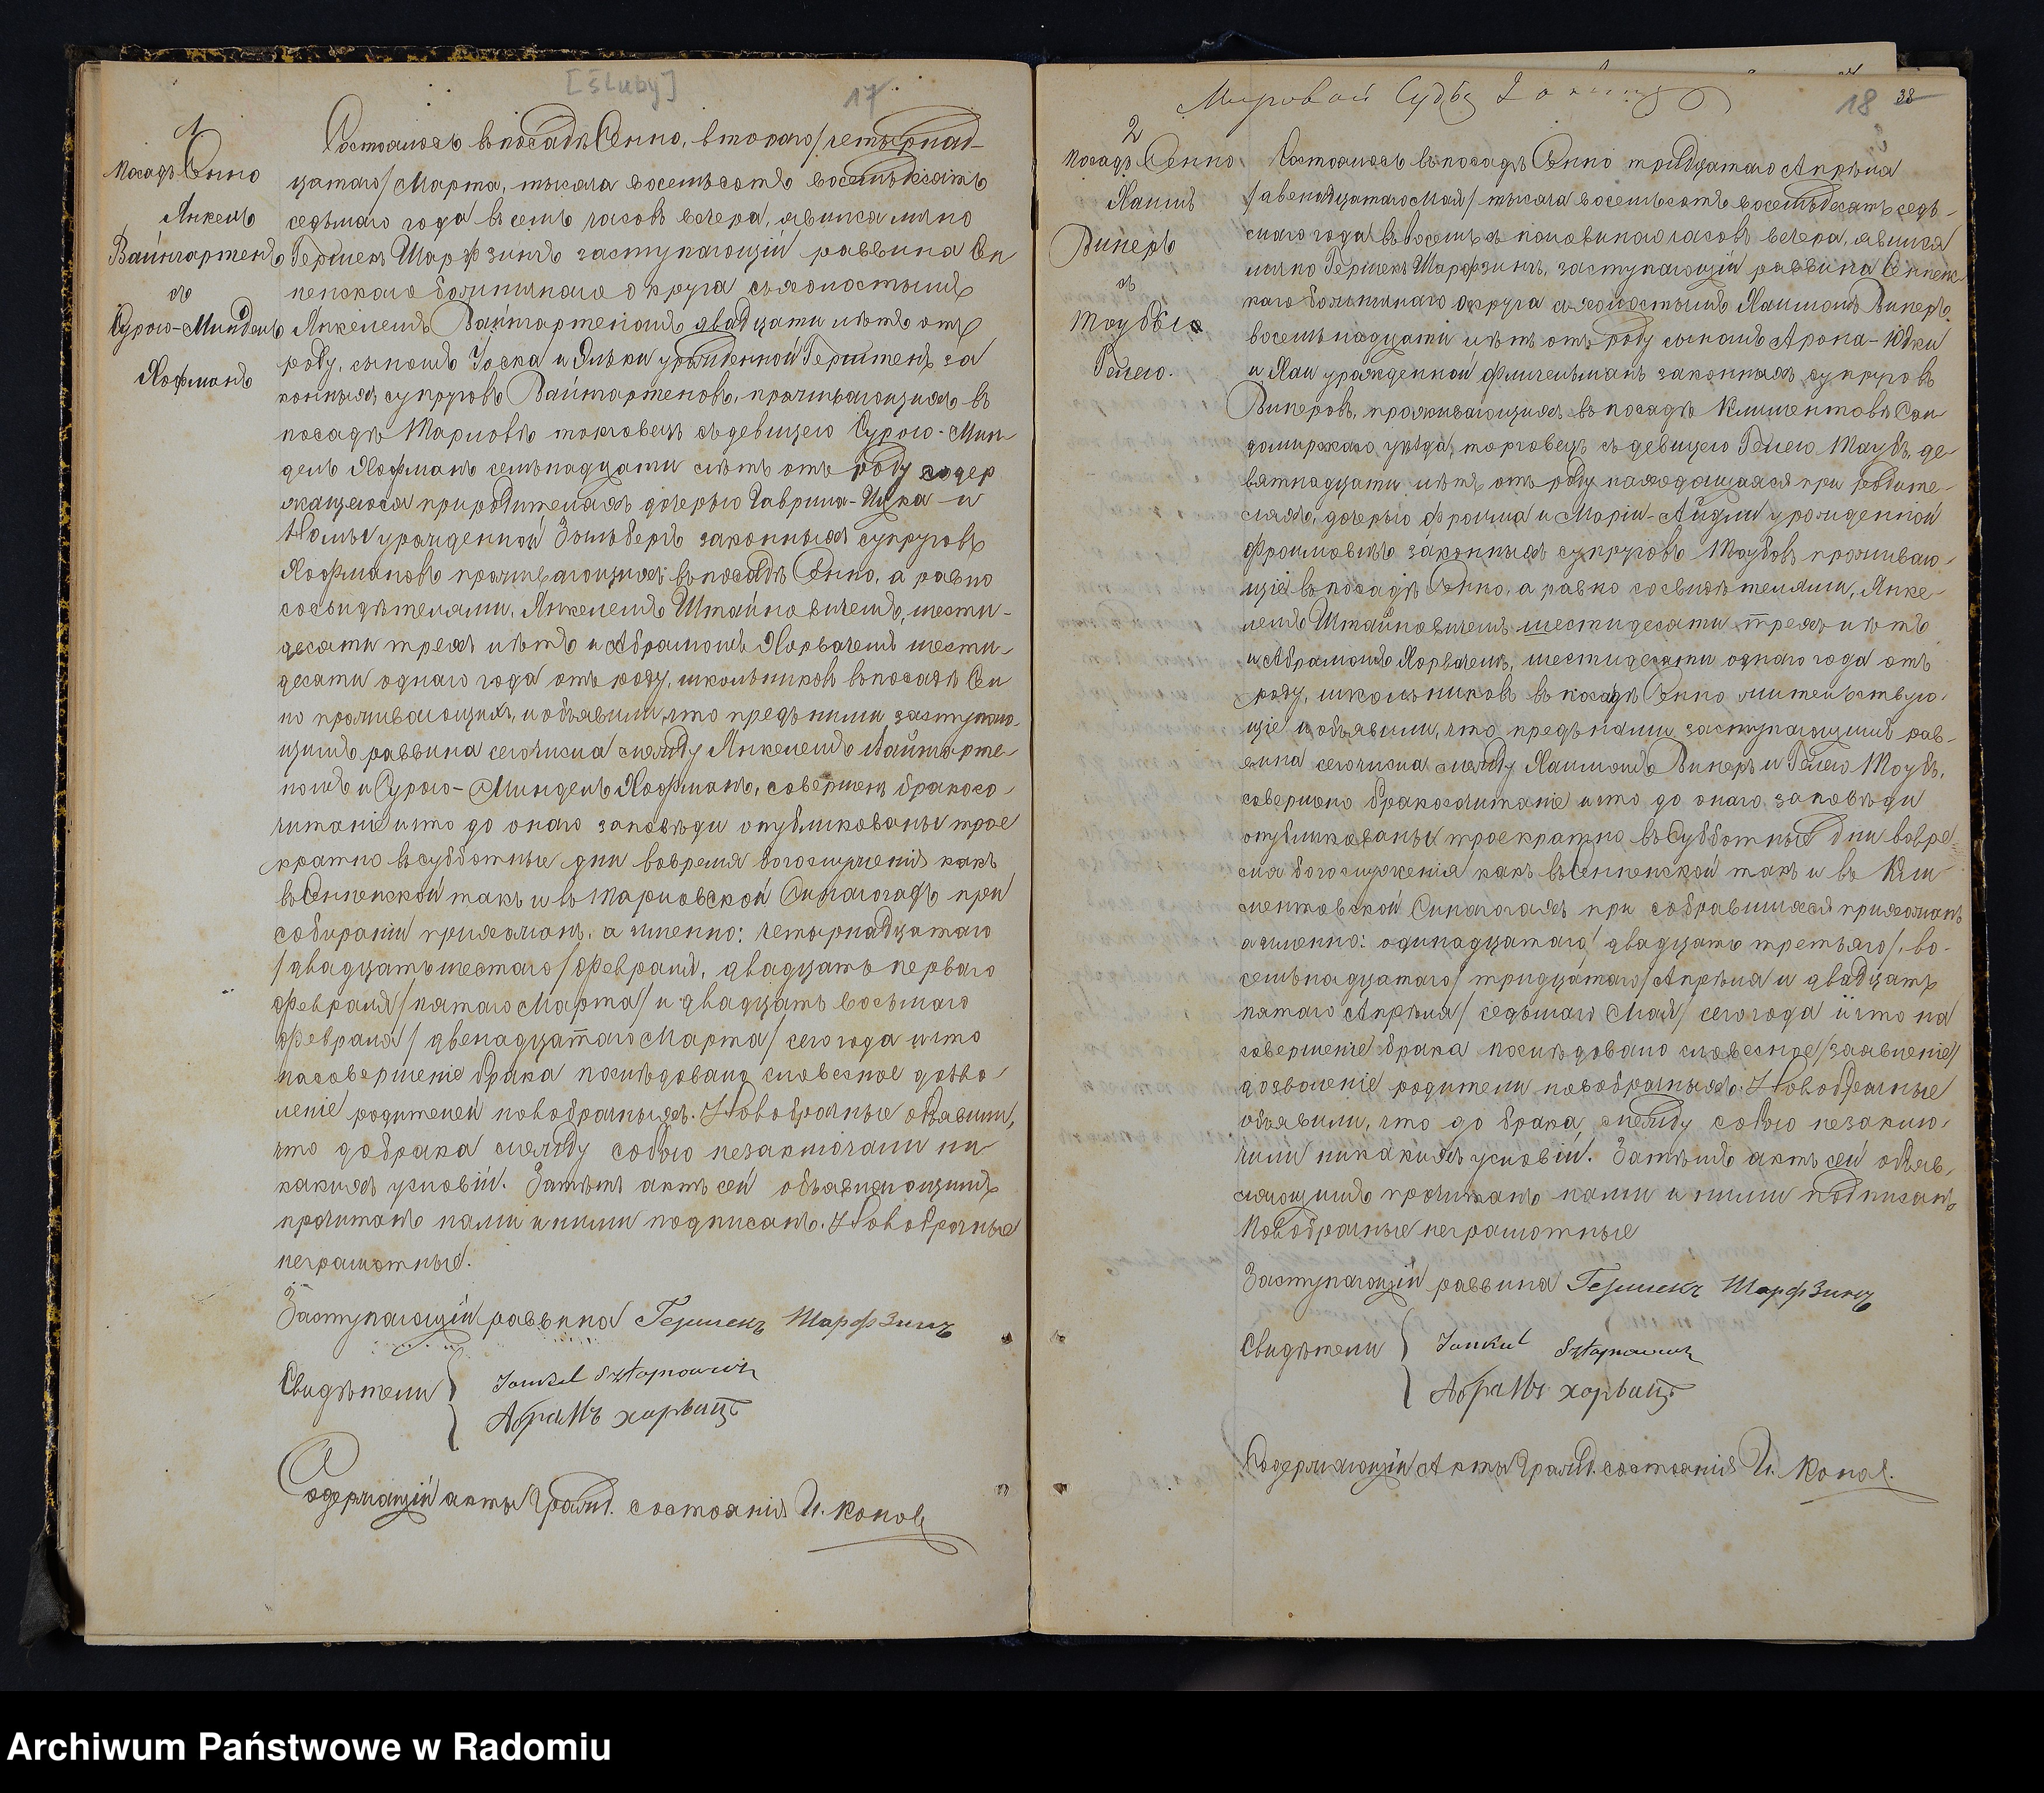 [śluby]
17
1
Посадъ Сенно
Янкель
Вайнгартенъ
съ
Сурою-Миндель
Хофманъ
Состоялось въ посадѣ Сенно, втораго/четырнад-
цатаго/Марта, тысяча восемьсотъ восемьдесятъ
седьмаго года въ семь часовъ вечера, явился лично
Гершекъ Шарфзинъ заступающій раввина Сен
ненскаго божничнаго округа съ холостымъ
Янкелемъ Вайнгартеномъ двадцати лѣтъ отъ
роду, сыномъ Іоска и урожденной за
конныхъ супруговъ Вайнгартеновъ, проживающихъ въ
посадѣ Тарловѣ торговецъ съ девицею Сурою-Мин
дель Хофманъ семьнадцати лѣтъ отъ роду содер
жащеюся при родителяхъ дочерью и
урожденной законныхъ супруговъ
Хофмановъ проживающихъ въ посадѣ Сенно, а равно
со свидѣтелями, Янкелемъ Штайновичемъ, шести-
десяти трехъ лѣтъ и Абрамомъ шести-
десяти однаго года отъ роду, школьниковъ въ посадѣ Сен
но проживающихъ, и объявили, что предъ ними заступаю-
щимъ раввина сего числа между Янкелемъ Вайнгарте-
номъ и Сурою-Миндель Хофманъ, совершен бракосо-
читаніе и что до онаго заповѣди опубликованы трое
кратно въ субботные дни во время богослуженія какъ
въ Сенненской такъ и въ Тарловской Синагогахъ при
собраніи прихожанъ, а именно: четырнадцатаго
/двадцать шестаго/Февраля, двадцать перваго
Февраля/пятаго Марта/и двадцать восьмаго
Февраля/двенадцатаго Марта/сего года и что
на совершеніе брака послѣдовало словесное дозво-
леніе родителей новобрачныхъ. Новобрачные объявили,
что до брака между собою незаключали ни
какихъ условій. Затѣмъ актъ сей объявляющимъ
прочитанъ нами и ними подписанъ. Новобрачные
неграмотные.
Заступающій раввина Гершекъ Шарфзинъ
Свидѣтели Jankel Sztajnowicz
Абрамъ хорвицъ
Содержащій акты гражд. состоянія И. Копов
Мировой Судья
18 38
2
Посадъ Сенно
Хаимъ
Винеръ
съ
Таубъ
Гелею.
Состоялось въ посадѣ Сенно тридцатаго Апрѣля
/двенадцатаго Мая/тысяча восемьсотъ восемьдесятъ седь-
маго года въ восемь съ половиною часовъ вечера, явился
лично Гершекъ Шарфзинъ, заступающій раввина Сеннен-
каго божничнаго округа съ холостымъ Хаимомъ Винеръ
восемьнадцати лѣтъ отъ роду сыномъ Арона-Юдки
и Хаи урожденной законныхъ супруговъ
Винеровъ, проживающихъ въ посадѣ Климентовѣ Сан
домирскаго уѣзда, торговецъ съ девицею Гелею Таубъ, де-
вятнадцати лѣтъ отъ роду находящаяся при родите-
ляхъ, дочерью Фроима и Маріи- урожденной
Фроимовичъ законныхъ супруговъ Таубовъ проживаю-
щіе въ посадѣ Сенно, а равно со свидѣтелями, Янке-
лемъ Штайновичемъ шестидесяти трехъ лѣтъ
и Абрамомъ шестидесяти однаго года отъ
роду, школьниковъ въ посадѣ Сенно жительствую-
щіе и объявили, что предъ нами заступающимъ рав-
вина сего числа между Хаимомъ Винеръ и Гелею Таубъ,
совершено бракосочитаніе и что до онаго заповѣди
опубликованы троекратно въ Субботные дни во вре-
мя богослуженія какъ въ Сенненской такъ и въ Кли
ментовской Синагогахъ при собравшихся прихожанъ
а именно: одинадцатаго/двадцать третьяго/, во-
семьнадцатаго/тридцатаго/Апрѣля и двадцать
пятаго Апрѣля/седьмаго Мая/сего года и что на
совершеніе брака послѣдовало словесное/заявленіе/
дозволеніе родители новобрачныхъ. Новобрачные
объявили, что до брака между собою незаклю-
чили никакихъ условій. Затѣмъ актъ сей объяв-
ляющимъ прочитанъ нами и ними подписанъ,
Новобрачные неграмотные
Заступающій раввина Гершекъ Шарфзинъ
Свидѣтели Jankel Sztajnowicz
Абрамъ хорвицъ
Содержающій Акты Гражд. состоянія И. Копов.
Archiwum Państwowe w Radomiu